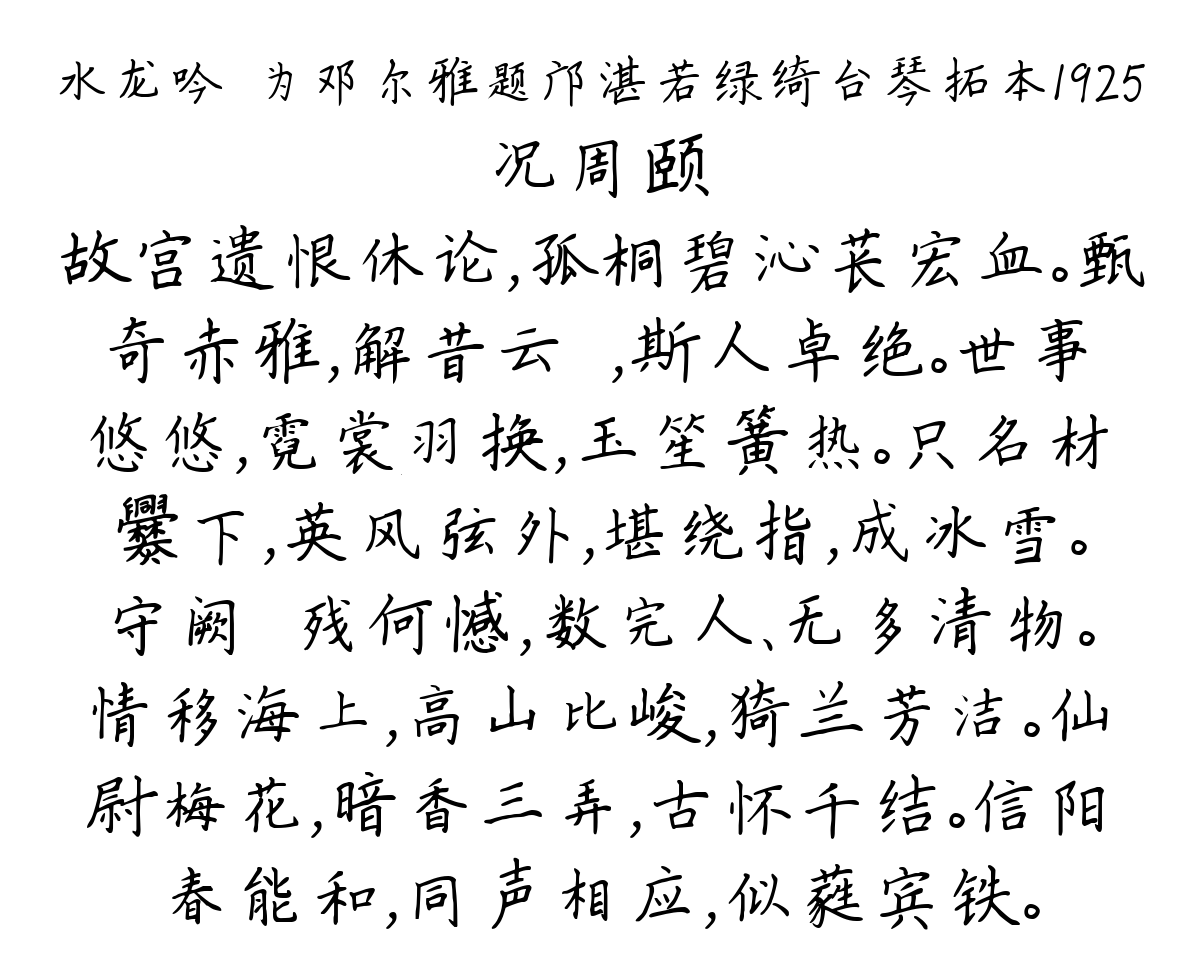 水龙吟 为邓尔雅题邝湛若绿绮台琴拓本1925
况周颐
故宫遗恨休论,孤桐碧沁苌宏血。甄
奇赤雅,解昔云 ,斯人卓绝。世事
悠悠,霓裳羽换,玉笙簧热。只名材
爨下,英风弦外,堪绕指,成冰雪。
守阙 残何憾,数完人、无多清物。
情移海上,高山比峻,猗兰芳洁。仙
尉梅花,暗香三弄,古怀千结。信阳
春能和,同声相应,似蕤宾铁。